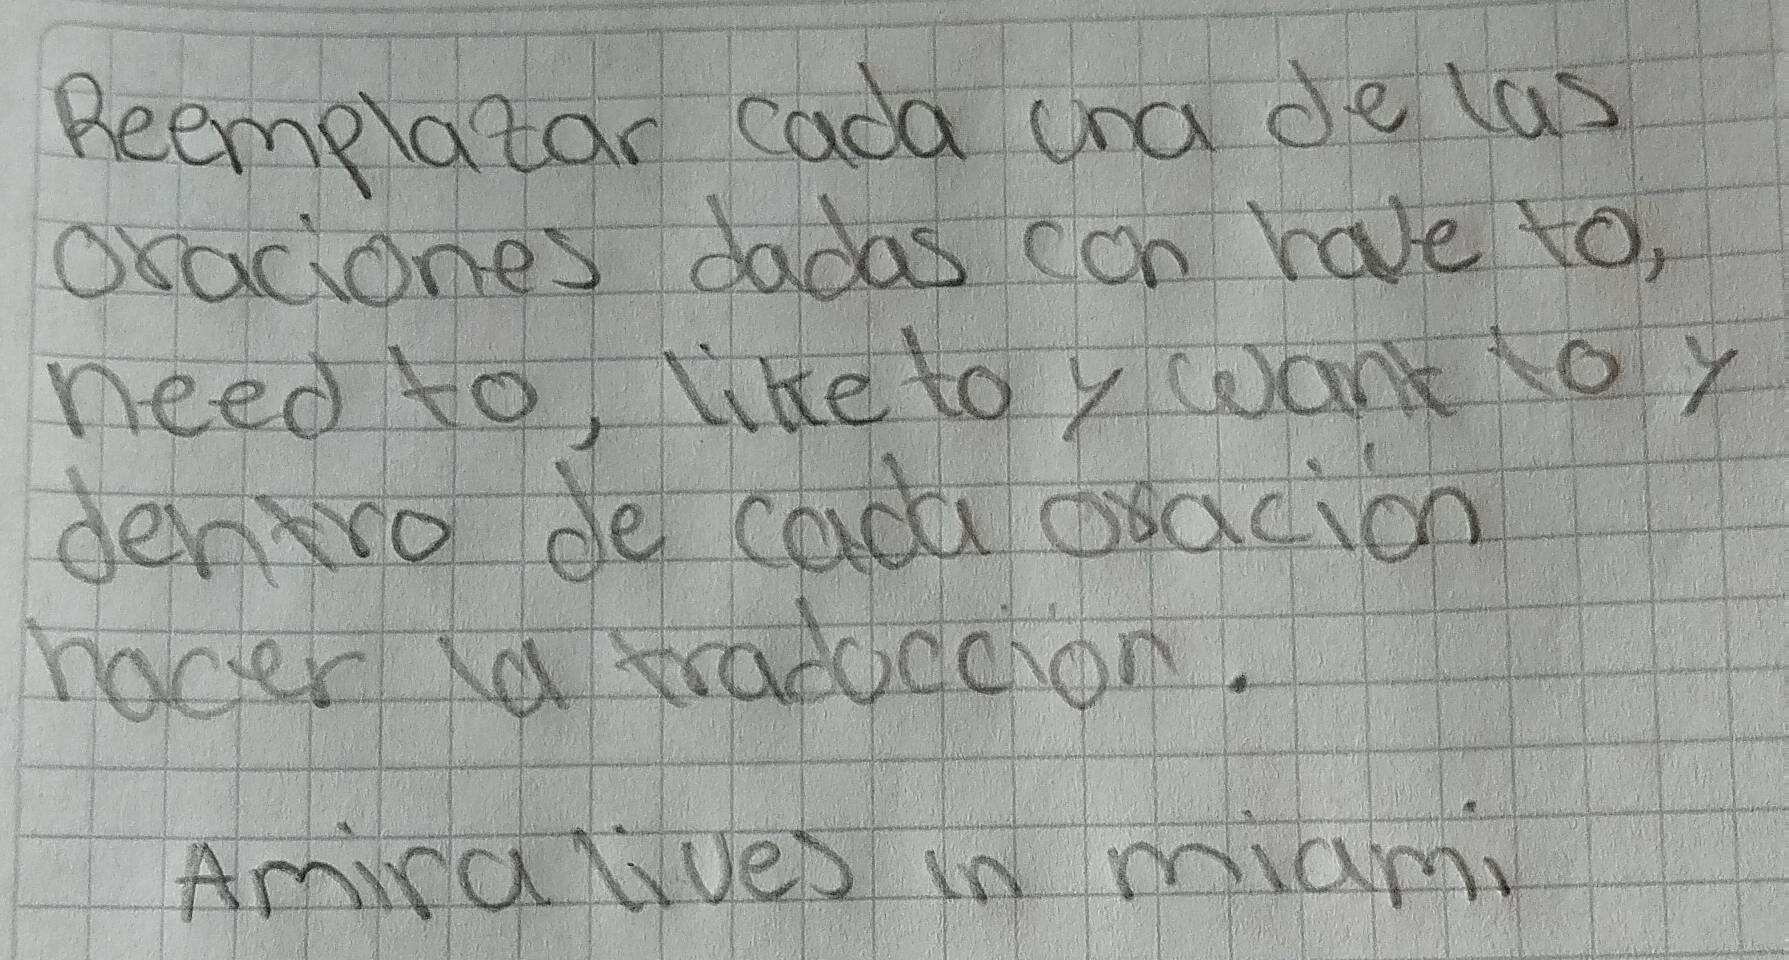 Reemplazar cada una de las
oraciones dadas con have to,
need to, like to y want to y
dentro de cada oración
hacer la traducción.
Amira lives in miami